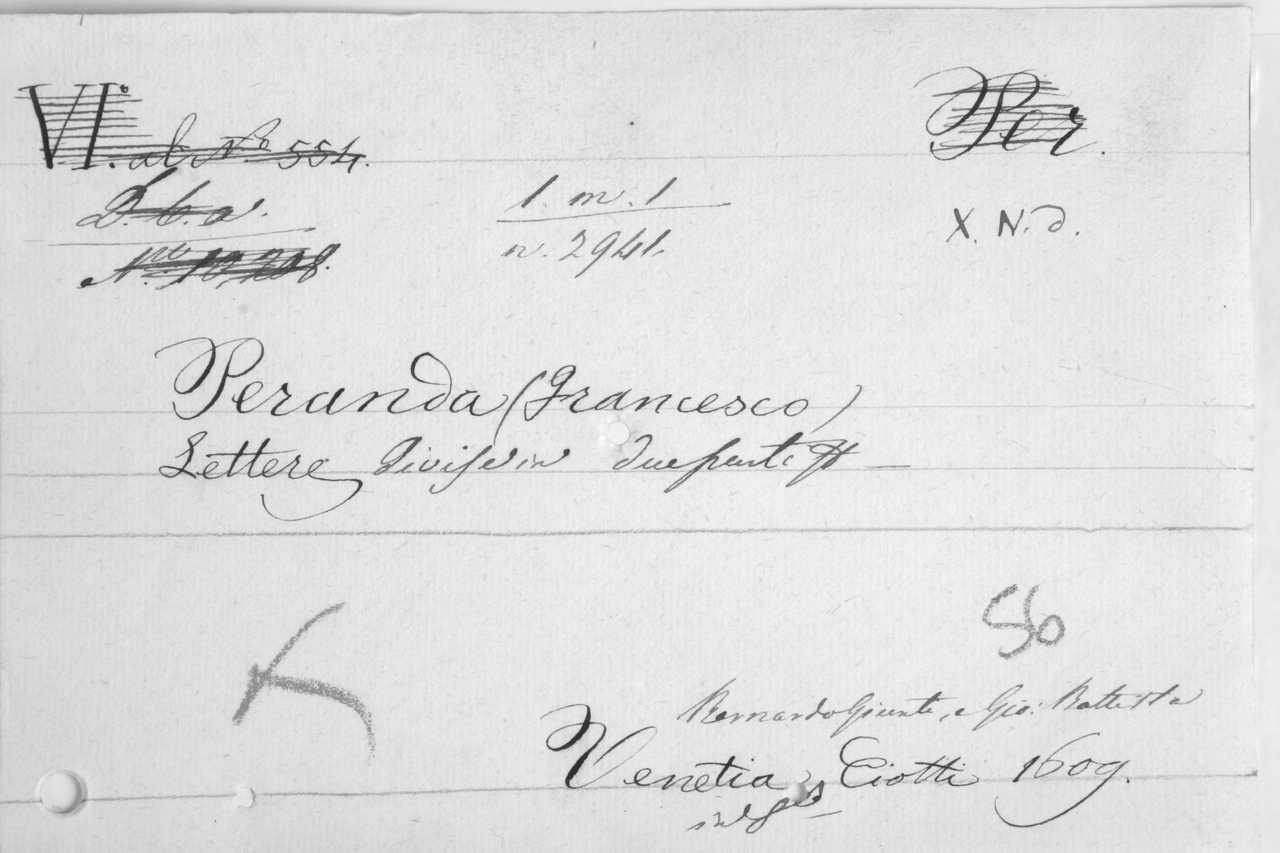 VI. al No 554.
Per.
D. b. a.
1. m. 1
n. 2941.
X. N. d.
Peranda (Francesco)
Lettere divise in due parti
So
Bernardo Giunti, e Gio: Battista
Venetia, Ciotti 1609.